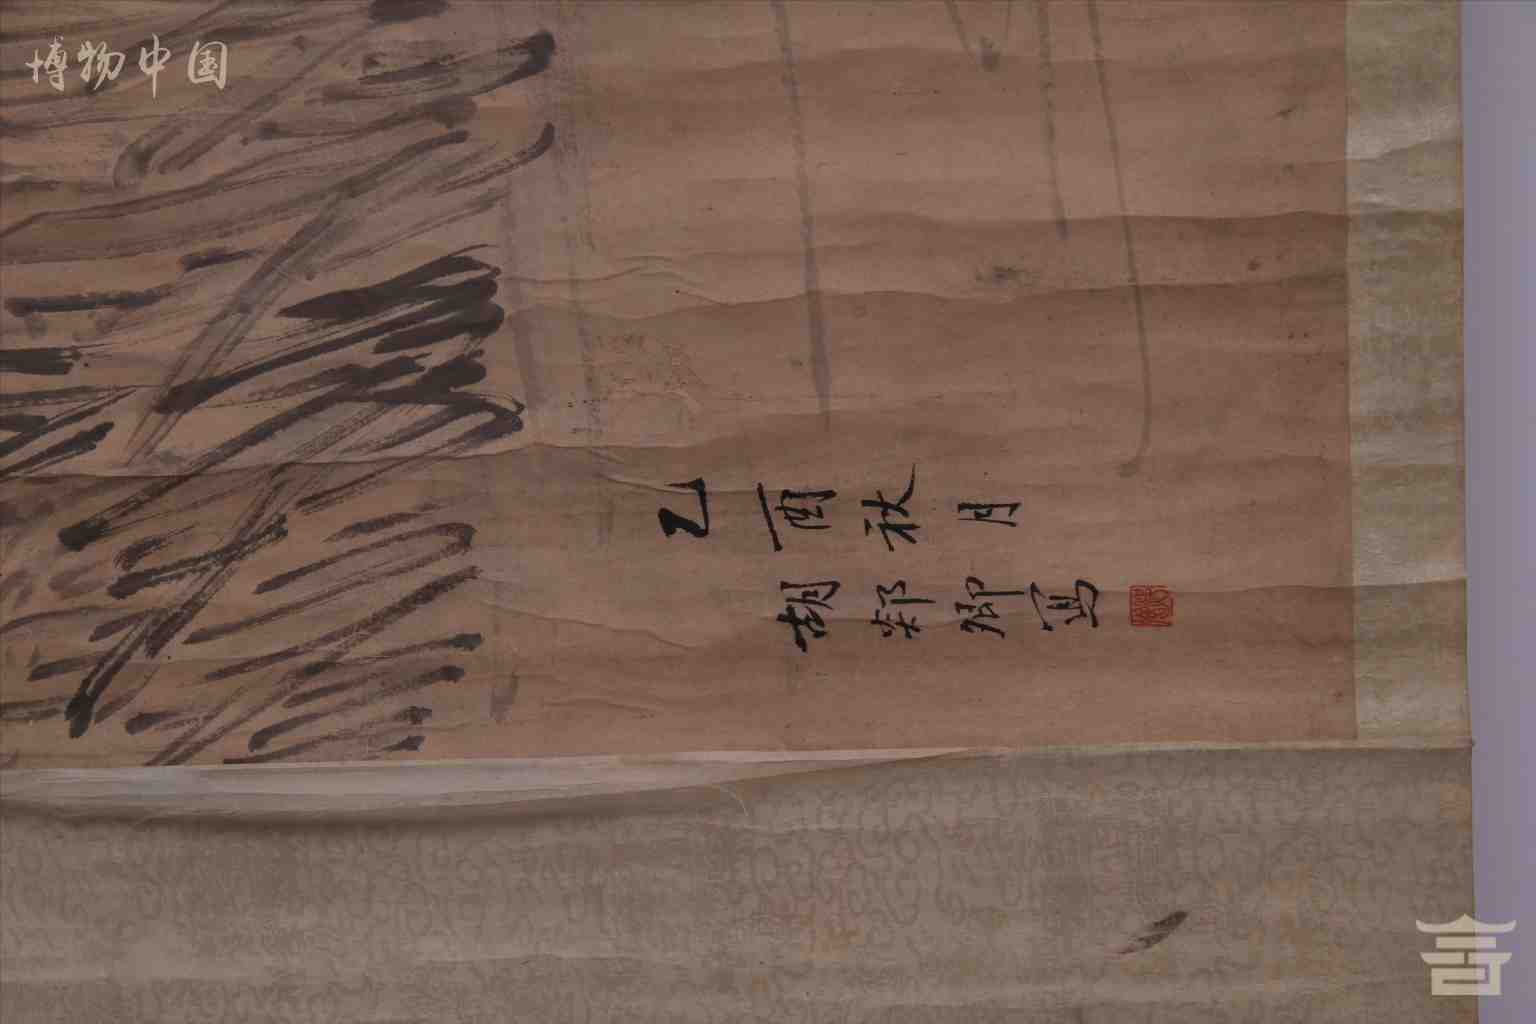 博物中国
乙酉秋月
胡郯卿写